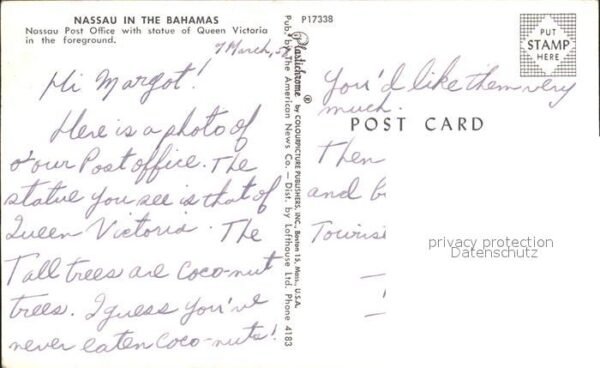 NASSAU IN THE BAHAMAS
Nassau Post Office with statue of Queen Victoria
in the foreground.
7 March, 52
Hi Margot!
Here is a photo of
our Post office. The
statue you see is that of
Queen Victoria. The
Tall trees are Coco-nut
trees. I guess you've
never eaten Coco-nuts!
Pub. by The American News Co. — Dist. by Lofthouse Ltd. Phone 4183
Plastichrome ® by COLOURPICTURE PUBLISHERS, INC., Boston 15, Mass., U.S.A.
P17338
PUT
STAMP
HERE
You'd like them very
much.
POST CARD
Then
and b
Touris
privacy protection
Datenschutz